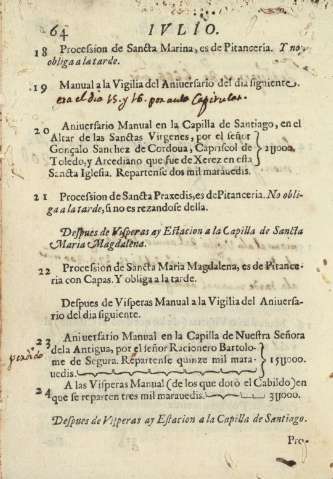 64 IVLIO.
18 Procession de Sancta Marina, es de Pitanceria. Y no
obliga a la tarde.
19 Manual a la Vigilia del Aniuersario del dia siguiente
era el dia 15. y 16. por auto Capitular.
20 Aniuersario Manual en la Capilla de Santiago, en el
Altar de las Sanctas Virgenes, por el señor
Gonçalo Sanchez de Cordoua, Capriscol de
Toledo, y Arcediano que fue de Xerez en esta
Sancta Iglesia. Repartense dos mil marauedis.
2U000.
21 Procession de Sancta Praxedis, es de Pitanceria. No obli-
ga a la tarde, si no es rezandose della.
Despues de Visperas ay Estacion a la Capilla de Sancta
Maria Magdalena.
22 Procession de Sancta Maria Magdalena, es de Pitance-
ria con Capas. Y obliga a la tarde.
Despues de Visperas Manual a la Vigilia del Aniuersa-
rio del dia siguiente.
23 Aniuersario Manual en la Capilla de Nuestra Señora
dela Antigua, por el señor Racionero Bartolo-
me de Segura. Repartense quinze mil mara-
uedis.
15U000.
perdido
24 A las Visperas Manual (de los que dotò el Cabildo) en
que se reparten tres mil marauedis. 3U000.
Despues de Visperas ay Estacion a la Capilla de Santiago.
Pro-